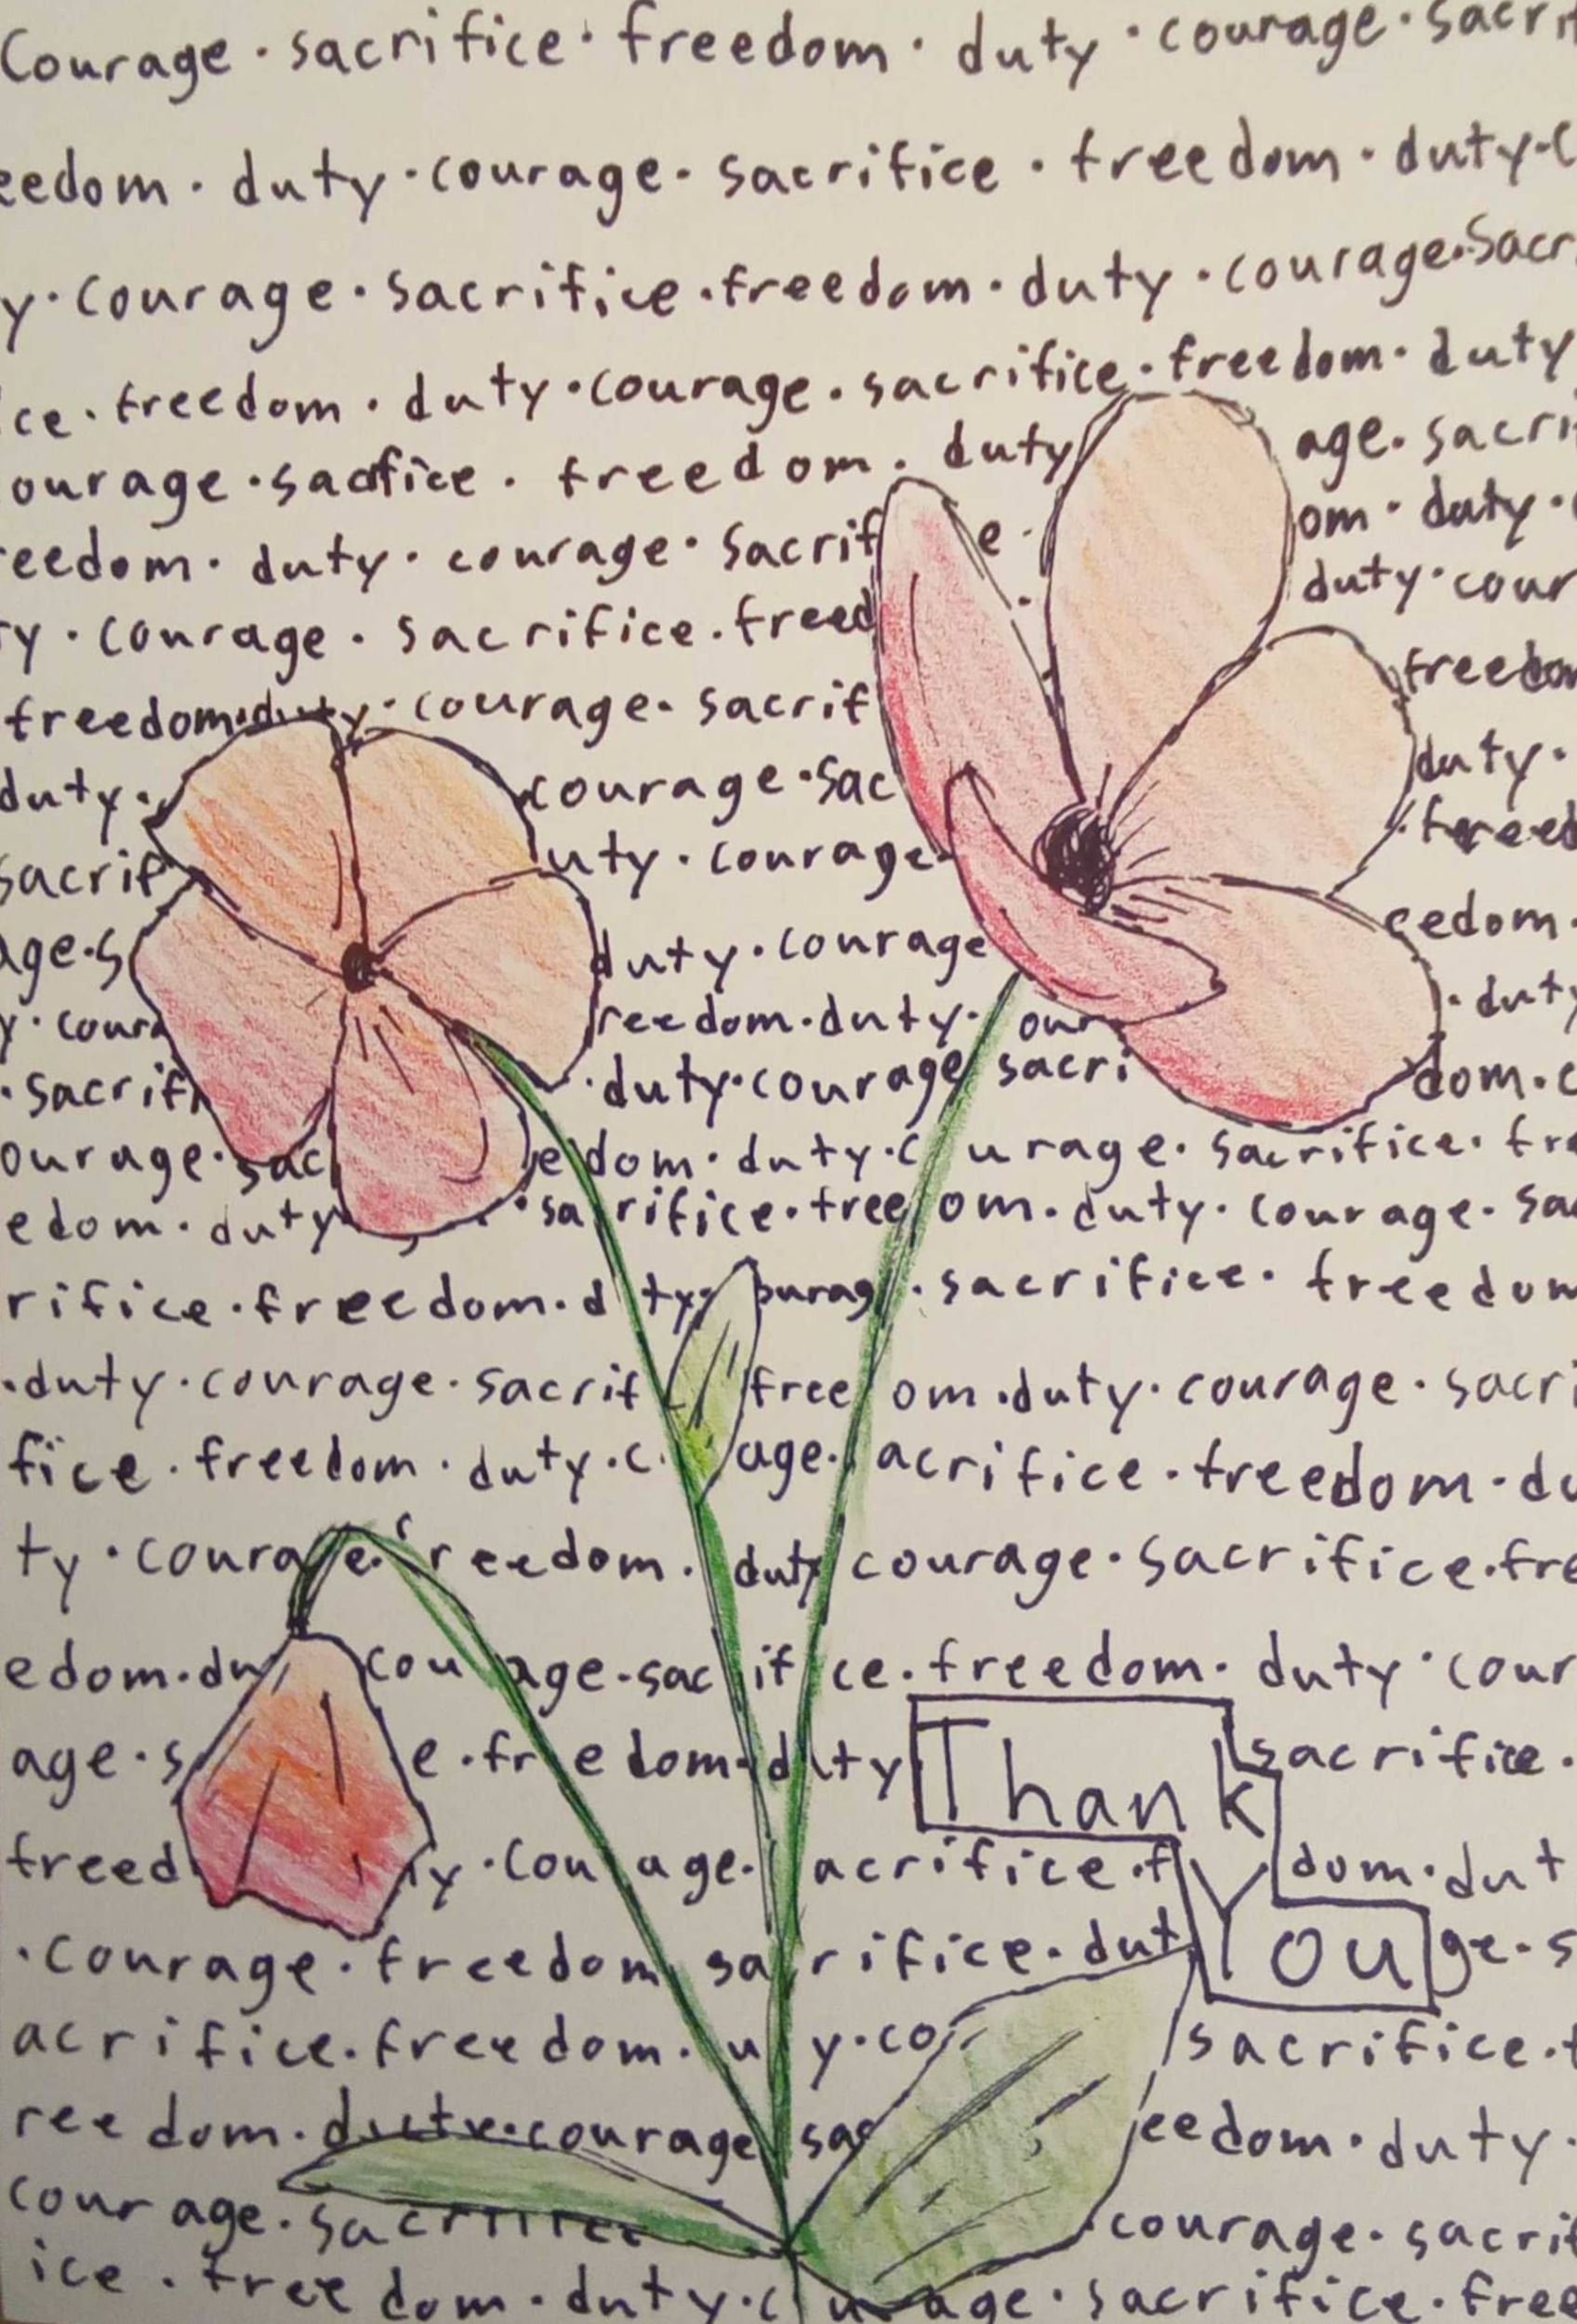 Courage · sacrifice · freedom · duty · courage · sacri
eedom · duty · courage · sacrifice · freedom · duty · c
y · courage · sacrifice · freedom · duty · courage · sacr
ce · freedom · duty · courage · sacrifice · freedom · duty
ourage · sacrfice · freedom · duty age · sacri
eedom · duty · courage · sacrif e · om · duty ·
y · courage · sacrifice · freed duty · cour
freedom · duty · courage · sacrif freedom
duty · courage · sac duty ·
sacrif uty · courage · freed
age · s duty · courage eedom ·
y · coura reedom · duty · our · duty
· sacrifi · duty · courage sacri dom · c
ourage · sac edom · duty · c urage · sacrifice · fre
edom · duty · sa rifice · free om · duty · courage · sa
rifice · freedom · d ty · ourag · sacrifice · freedom
· duty · courage · sacrif free om · duty · courage · sacri
fice · freedom · duty · c age · acrifice · freedom · du
ty · courage · reedom · duty courage · sacrifice · fre
edom · du cou age · sac if ce · freedom · duty · cour
age · s e · fr edom · d ty Thank sacrifice ·
freed y · cou age · acrifice · f dom · dut
· courage · freedom sa rifice · dut You ge · s
acrifice · freedom · u y · co sacrifice · f
reedom · duty · courage sac eedom · duty ·
courage · sacrifice courage · sacrif
ice · freedom · duty · c u age · sacrifice · free